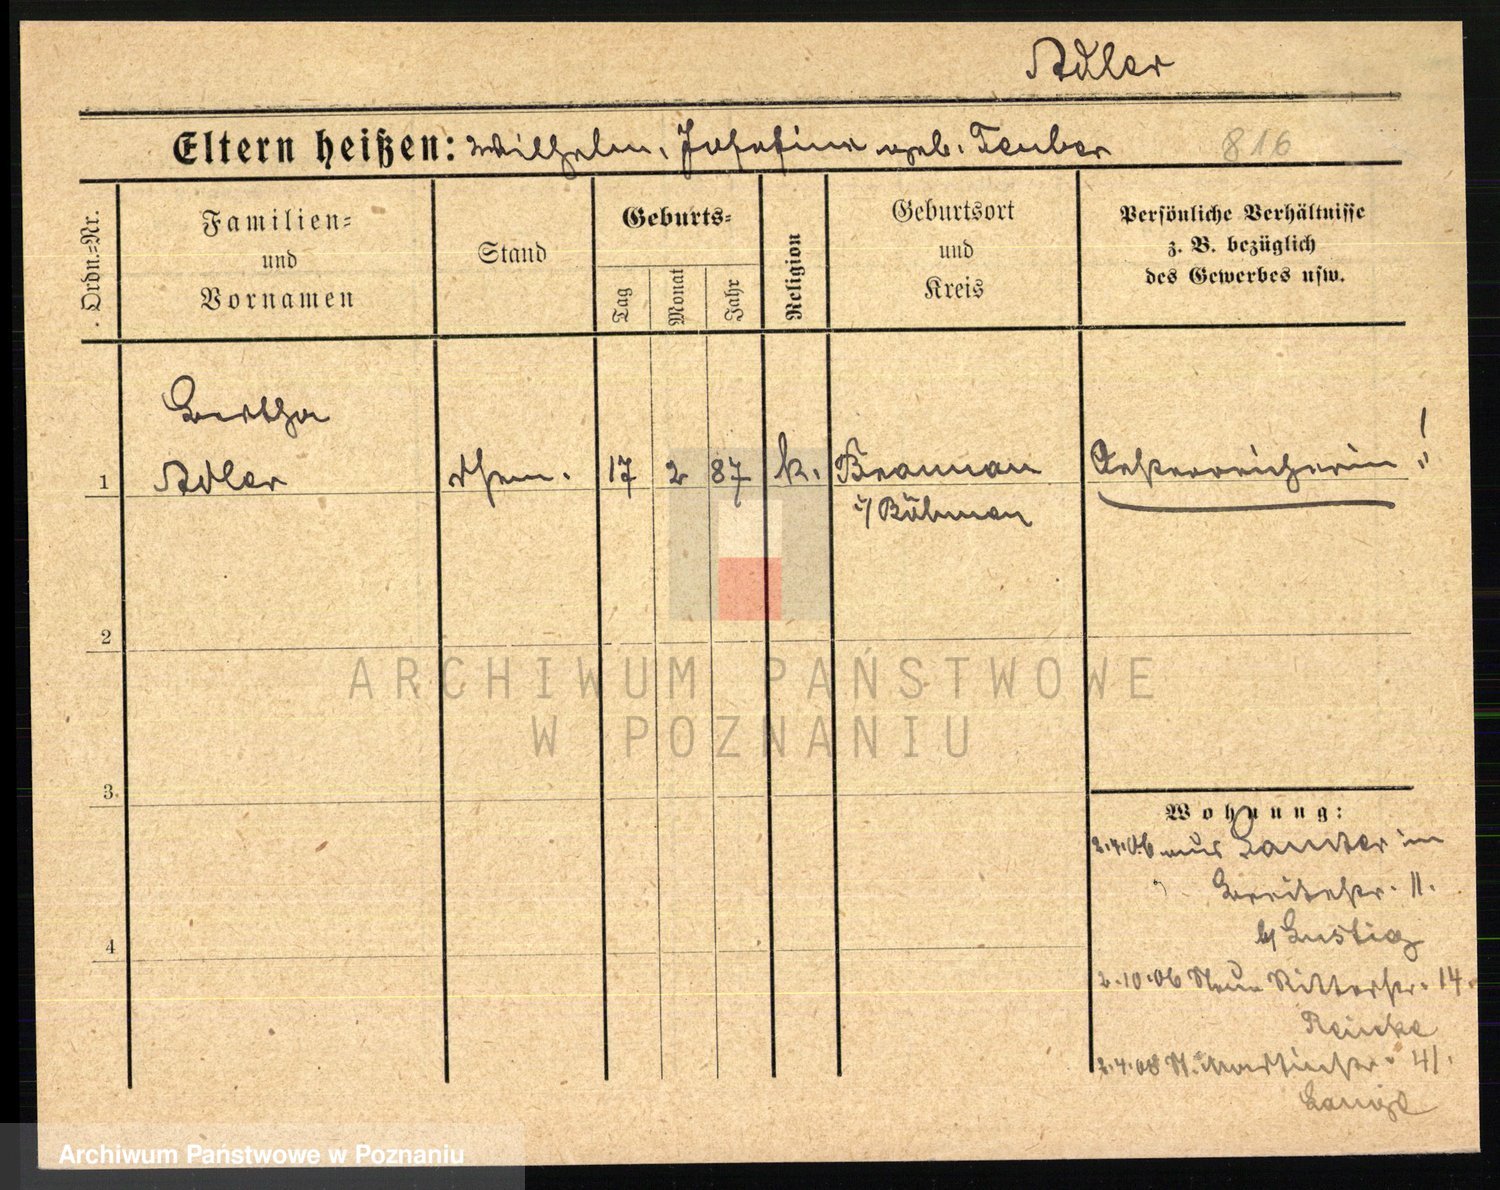 Adler
Eltern heißen: Wilhelm, Josefine geb. Teuber
816
Ordn.=Nr.
Familien=
und
Vornamen
Stand
Geburts=
Tag
Monat
Jahr
Religion
Geburtsort
und
Kreis
Persönliche Verhältnisse
z. B. bezüglich
des Gewerbes usw.
Bertha
1 Adler 17 2 87 k. Braunau Oesterreicherin !!
i/ Böhmen
2
3.
4
Wohnung:
2.4.06 aus
Breitestr. 11.
b/ Lustig
2.10.06 Neue Ritterstr. 14.
Reinke
2.4.08 St. Martinstr. 41.
ARCHIWUM PAŃSTWOWE
W POZNANIU
Archiwum Państwowe w Poznaniu